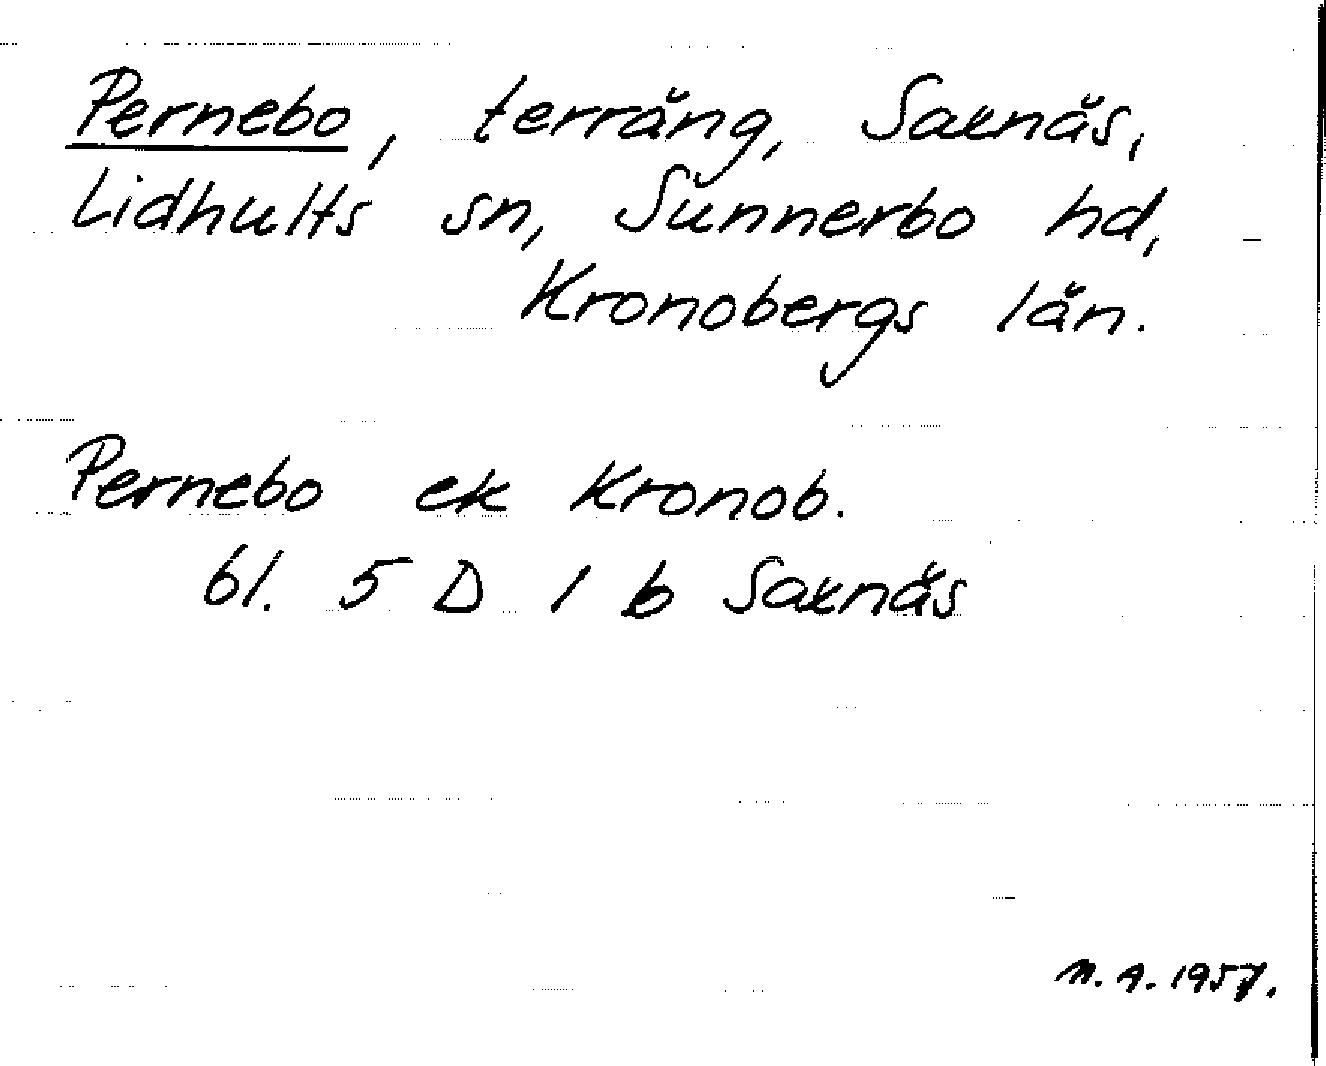 Pernebo, terräng, Saxnäs,
Lidhults sn, Sunnerbo hd,
Kronobergs län.
Pernebo ek Kronob.
bl. 5 D 1 b Saxnäs
M. A. 1957.